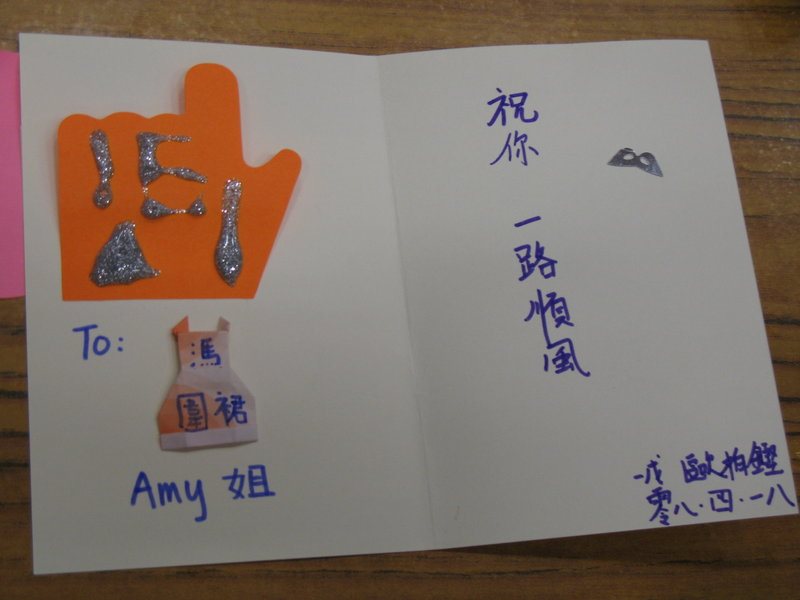 To:
馮
圍裙
Amy 姐
祝你
一路順風
歐柏鏗
零八.四.一八